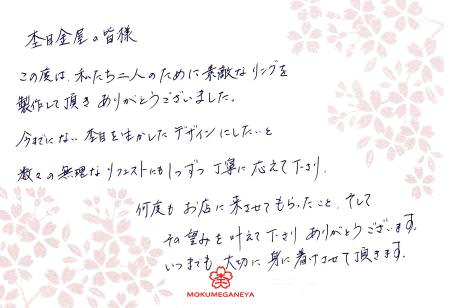 杢目金屋の皆様
この度は、私たち二人のために素敵なリングを
製作して頂きありがとうございました。
今までにない杢目を生かしたデザインにしたいと
数々の無理なリクエストにも1つずつ丁寧に応えて下さり、
何度もお店に来させてもらったこと、そして
その望みを叶えて下さりありがとうございます。
いつまでも大切に身に着けさせて頂きます。
MOKUMEGANEYA